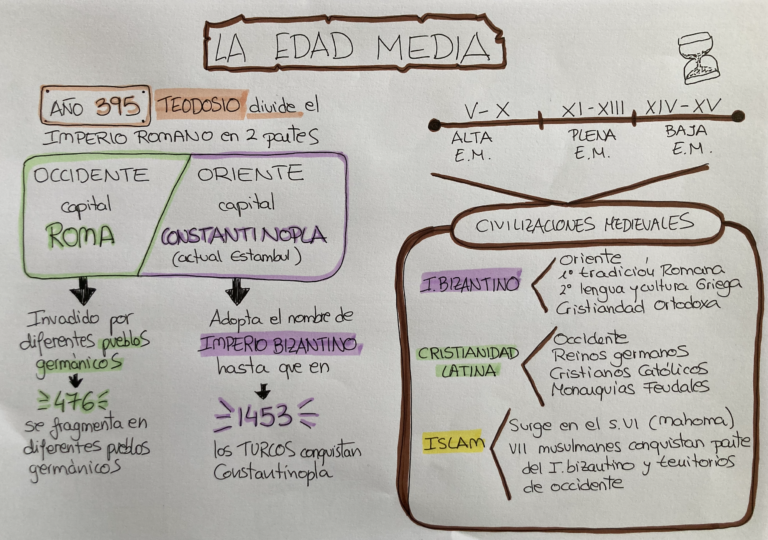 LA EDAD MEDIA
AÑO 395 TEODOSIO divide el
IMPERIO ROMANO en 2 partes
OCCIDENTE
capital
ROMA
ORIENTE
capital
CONSTANTINOPLA
(actual Estambul)
Invadido por
diferentes pueblos
germánicos
476
se fragmenta en
diferentes pueblos
germánicos
Adopta el nombre de
IMPERIO BIZANTINO
hasta que en
1453
los TURCOS conquistan
Constantinopla
V-X XI-XIII XIV-XV
ALTA
E.M.
PLENA
E.M.
BAJA
E.M.
CIVILIZACIONES MEDIEVALES
I.BIZANTINO
Oriente
1º tradición Romana
2º lengua y cultura Griega
Cristiandad Ortodoxa
CRISTIANIDAD
LATINA
Occidente
Reinos germanos
Cristianos Católicos
Monarquías Feudales
ISLAM
Surge en el s.VI (mahoma)
VII musulmanes conquistan parte
del I.bizantino y territorios
de occidente